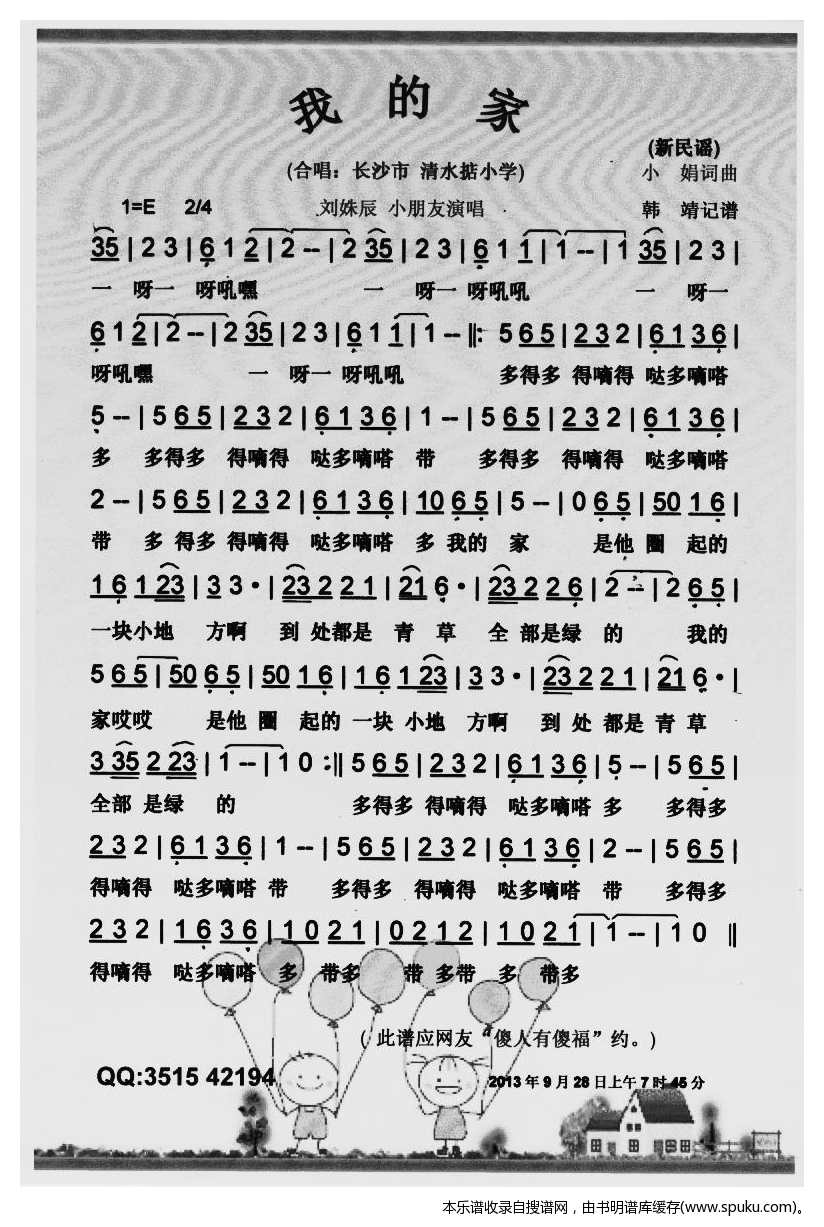 我的家
(新民谣)
(合唱：长沙市 清水掂小学) 小 娟词曲
1=E 2/4 刘姝辰 小朋友演唱 韩 靖记谱
35 | 2 3 | 6 1 2 | 2 -- | 2 35 | 2 3 | 6 1 1 | 1 -- | 1 35 | 2 3 |
一 呀一 呀吼嘿 一 呀一 呀吼吼 一 呀一
6 1 2 | 2 -- | 2 35 | 2 3 | 6 1 1 | 1 -- ‖: 5 6 5 | 2 3 2 | 6 1 3 6 |
呀吼嘿 一 呀一 呀吼吼 多得多 得嘀得 哒多嘀嗒
5 -- | 5 6 5 | 2 3 2 | 6 1 3 6 | 1 -- | 5 6 5 | 2 3 2 | 6 1 3 6 |
多 多得多 得嘀得 哒多嘀嗒 带 多得多 得嘀得 哒多嘀嗒
2 -- | 5 6 5 | 2 3 2 | 6 1 3 6 | 10 6 5 | 5 -- | 0 6 5 | 50 1 6 |
带 多 得多 得嘀得 哒多嘀嗒 多 我的 家 是他 圈 起的
1 6 1 23 | 3 3 · | 23 2 2 1 | 21 6 · | 23 2 2 6 | 2 -- | 2 6 5 |
一块小地 方啊 到 处都是 青 草 全 部是绿 的 我的
5 6 5 | 50 6 5 | 50 1 6 | 1 6 1 23 | 3 3 · | 23 2 2 1 | 21 6 · |
家哎哎 是他 圈 起的 一块 小地 方啊 到 处 都是 青 草
3 35 2 23 | 1 -- | 1 0 :‖ 5 6 5 | 2 3 2 | 6 1 3 6 | 5 -- | 5 6 5 |
全部 是绿 的 多得多 得嘀得 哒多嘀嗒 多 多得多
2 3 2 | 6 1 3 6 | 1 -- | 5 6 5 | 2 3 2 | 6 1 3 6 | 2 -- | 5 6 5 |
得嘀得 哒多嘀嗒 带 多得多 得嘀得 哒多嘀嗒 带 多得多
2 3 2 | 1 6 3 6 | 1 0 2 1 | 0 2 1 2 | 1 0 2 1 | 1 -- | 1 0 ‖
得嘀得 哒多嘀嗒 多 带多 带 多带 多 带多
( 此谱应网友“傻人有傻福”约。)
QQ:3515 42194 2013 年 9 月 28 日上午 7 时 45 分
本乐谱收录自搜谱网，由书明谱库缓存(www.spuku.com)。